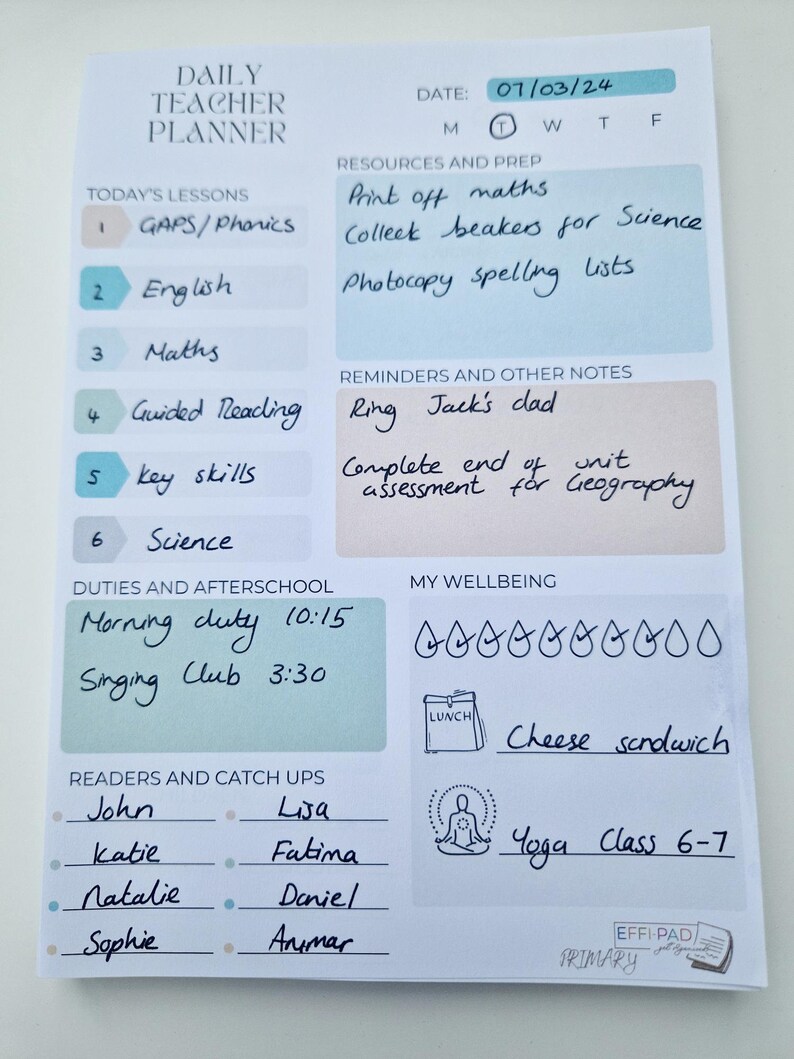 DAILY
TEACHER
PLANNER
DATE: 07/03/24
M T W T F
TODAY'S LESSONS
1 GAPS/Phonics
2 English
3 Maths
4 Guided Reading
5 Key skills
6 Science
RESOURCES AND PREP
Print off maths
Collect beakers for Science
Photocopy spelling lists
REMINDERS AND OTHER NOTES
Ring Jack's dad
Complete end of unit
assessment for Geography
DUTIES AND AFTERSCHOOL
Morning duty 10:15
Singing Club 3:30
MY WELLBEING
LUNCH
Cheese sandwich
Yoga Class 6-7
READERS AND CATCH UPS
John Lisa
Katie Fatima
Natalie Daniel
Sophie
EFFI-PAD
get organised
PRIMARY